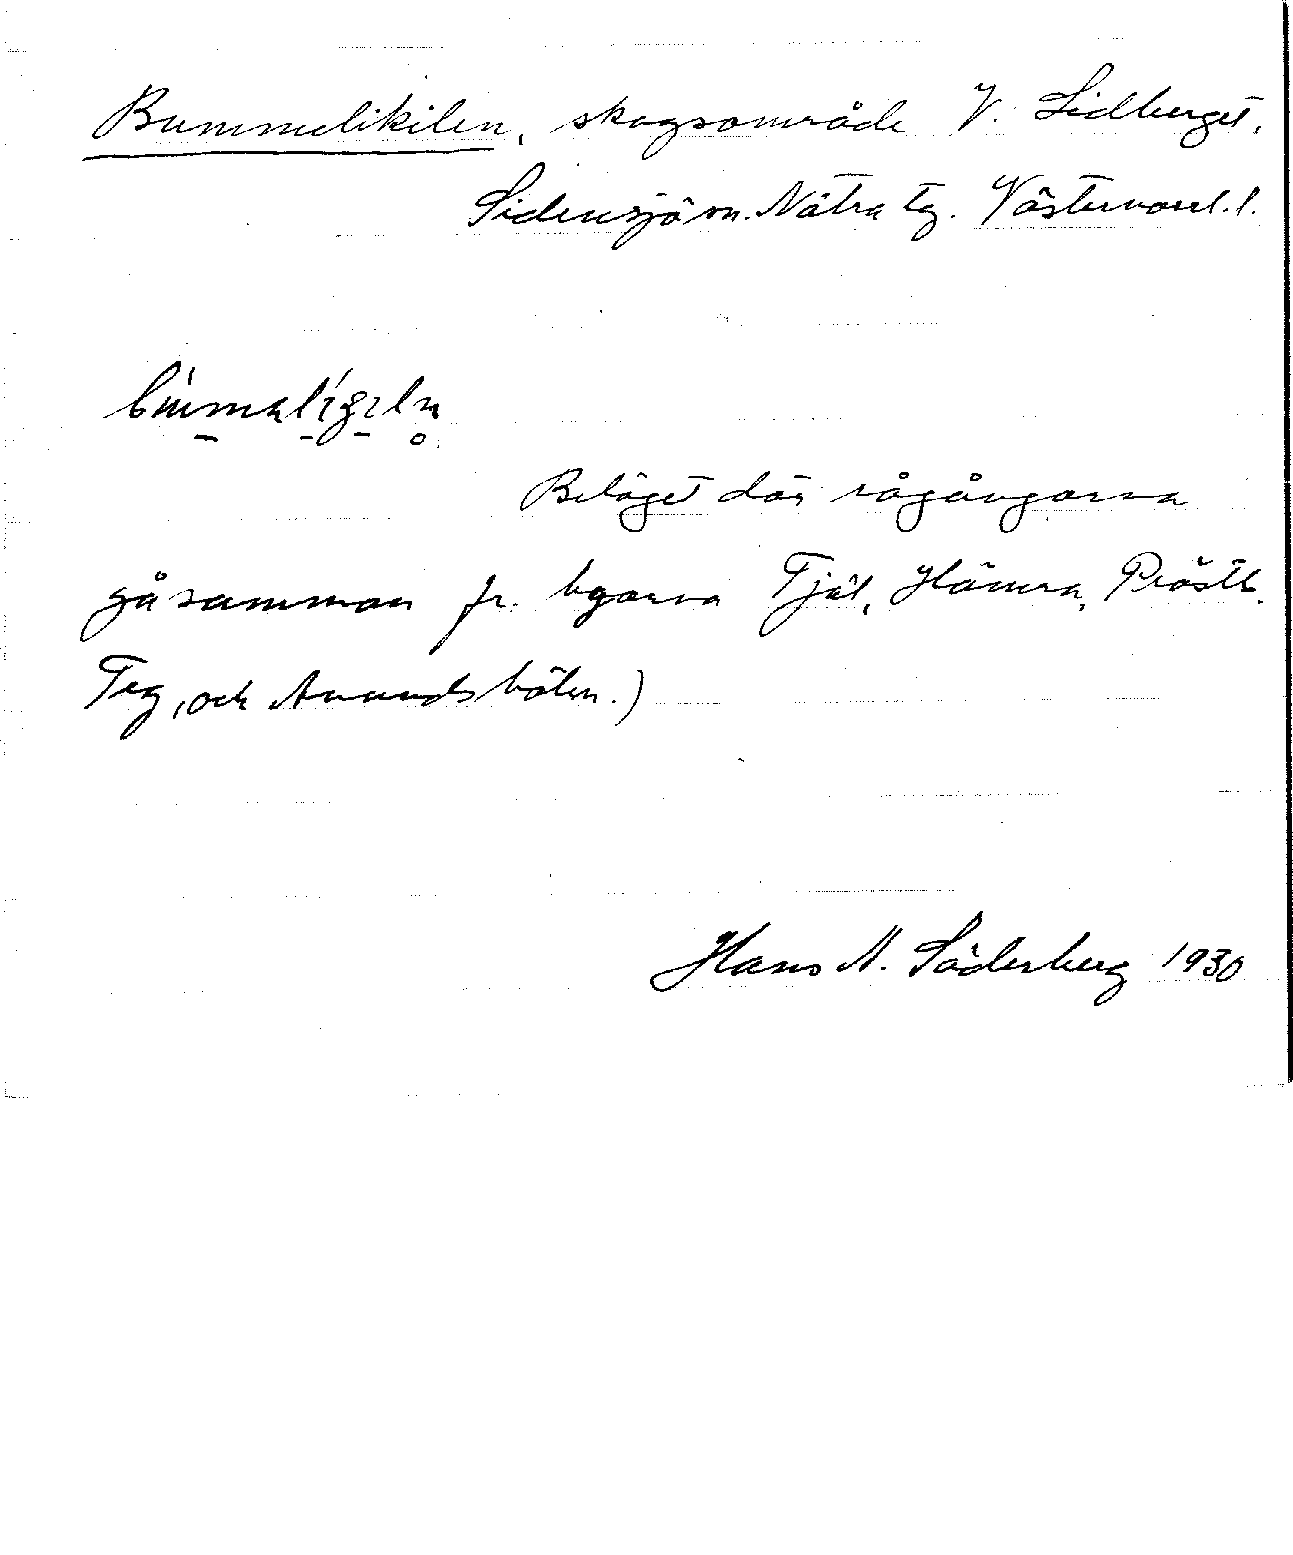 Bummelikilen, skogsområde V. Lidberget,
Sidensjö sn. Nätra tg. Västernorrl. l.
Beläget där rågångarna
gå samman fr. byarna Tjäl, Hämra, Prästb.
Teg, och Anundsbölen.)
Hans N. Söderberg 1930